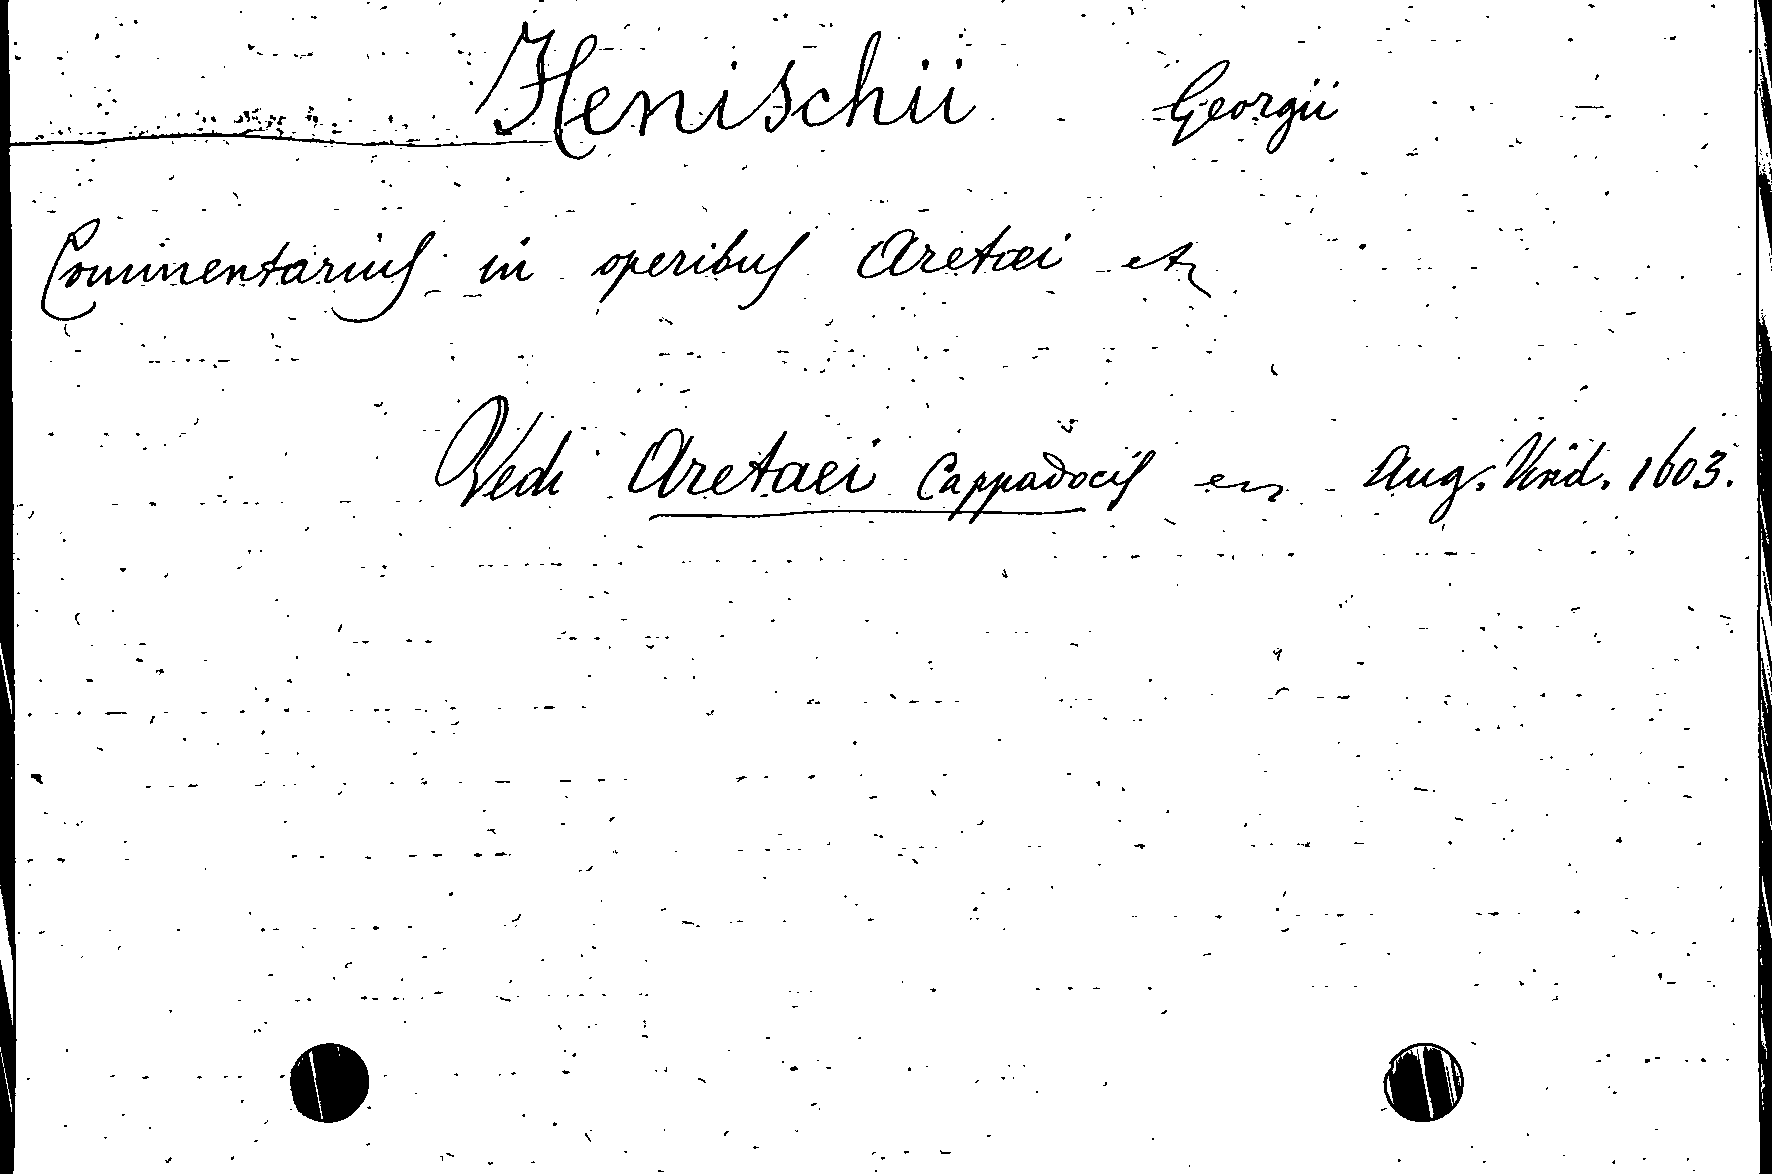 Henischii Georgii
Commentarius in operibus Aretæi etc
Vedi Aretaei Cappadocis Aug. Vind. 1603.